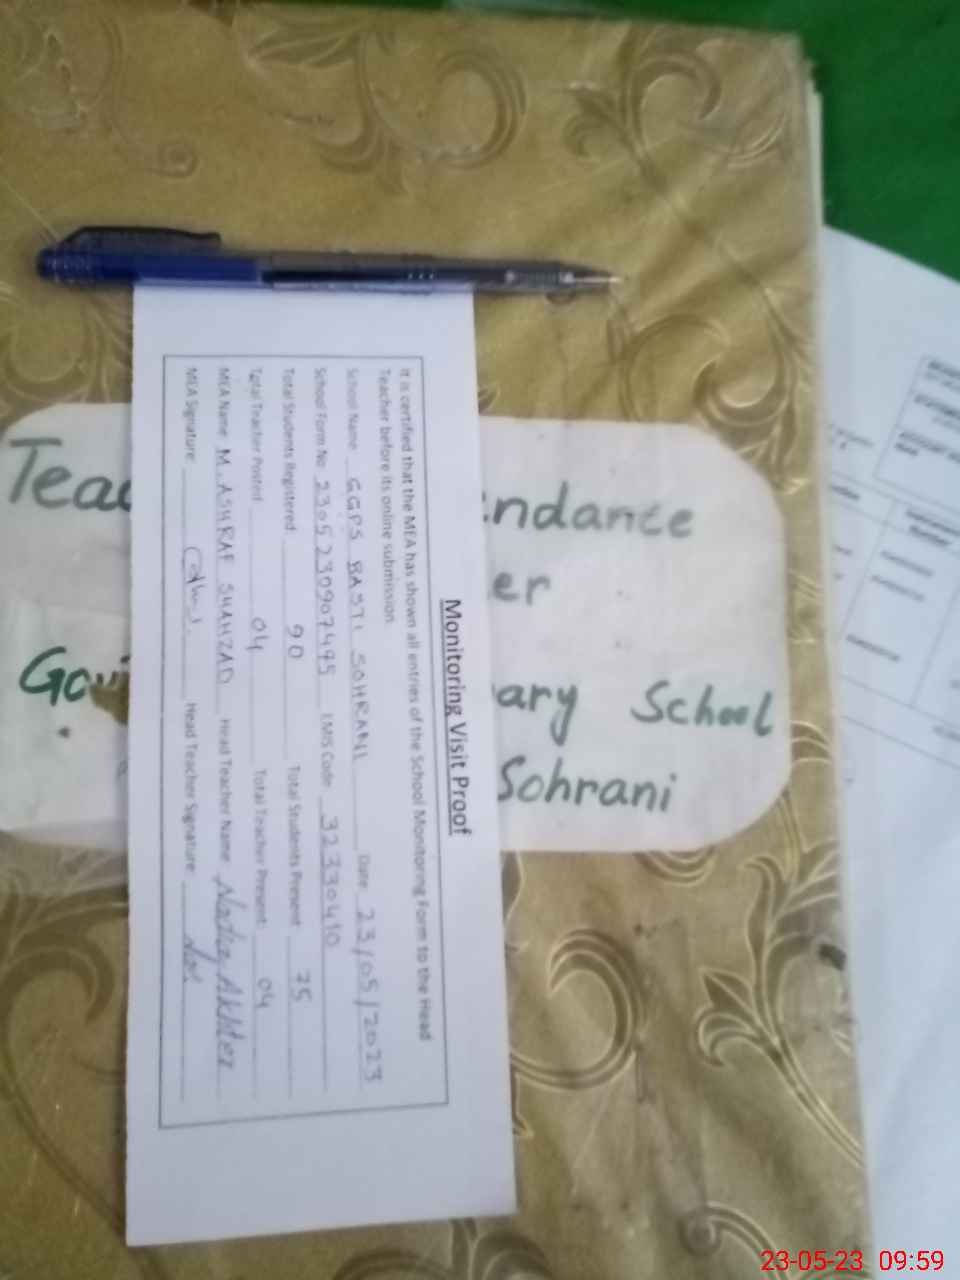 Monitoring Visit Proof
It is certified that the MEA has shown all entries of the School Monitoring Form to the Head
Teacher before its online submission.
School Name GGPS BASTI SOHRANI Date 23/05/2023
School Form No 2305230907495 EMIS Code 32330410
Total Students Registered 90 Total Students Present 75
Total Teacher Posted 04 Total Teacher Present: 04
MEA Name M. ASHRAF SHAHZAD Head Teacher Name Nadia Akhter
MEA Signature: Head Teacher Signature:
Teac ndance
er
Gov ary School
Sohrani
23-05-23 09:59